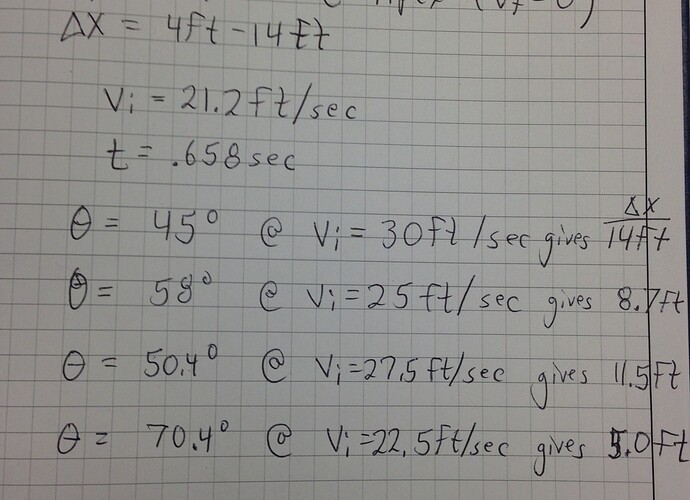 (Vf=0)
ΔX = 4ft-14ft
Vi = 21.2ft/sec
t = .658sec
ΔX
θ = 45° @ Vi = 30ft/sec gives 14ft
θ = 58° @ Vi=25ft/sec gives 8.7ft
θ = 50.4° @ Vi=27.5ft/sec gives 11.5ft
θ = 70.4° @ Vi=22.5ft/sec gives 5.0ft